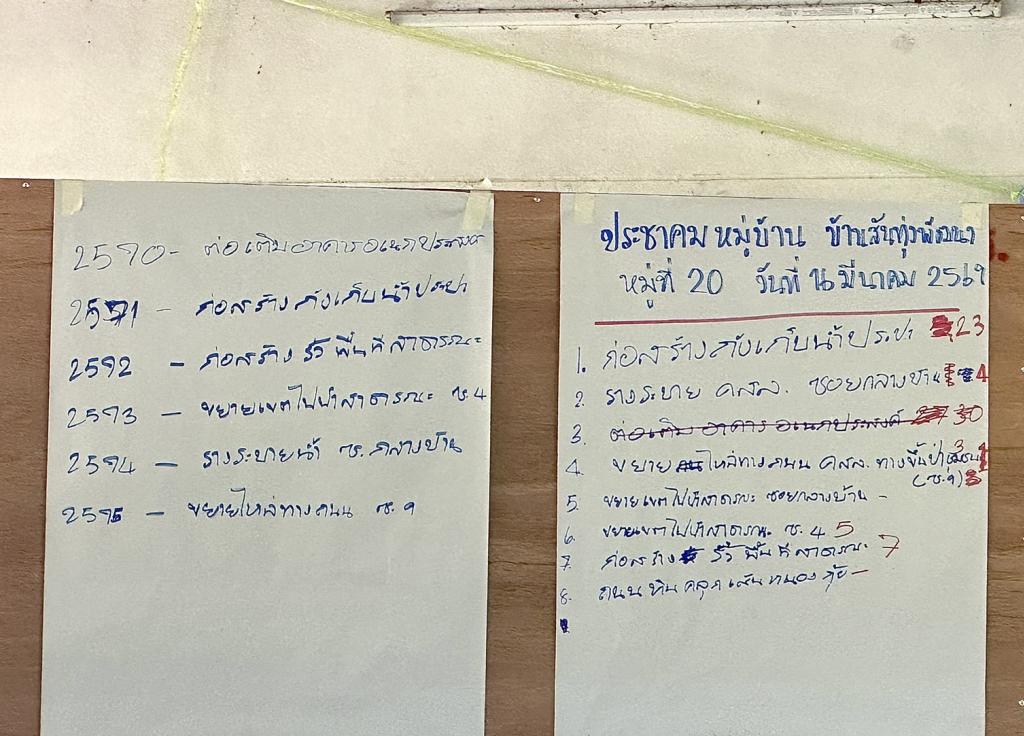 2570 - ต่อเติมอาคารอเนกประสงค์
2571 - ก่อสร้างถังเก็บน้ำประปา
2572 - ก่อสร้าง รั้ว พื้นที่สาธารณะ
2573 - ขยายเขตไฟฟ้าสาธารณะ ซ.4
2574 - รางระบายน้ำ ซ.กลางบ้าน
2575 - ขยายไหล่ทางถนน ซ.9
ประชาคมหมู่บ้าน บ้านสันทุ่งพัฒนา
หมู่ที่ 20 วันที่ มีนาคม 2569
1. ก่อสร้างถังเก็บน้ำประปา 23
2. รางระบาย คสล. ซอยกลางบ้าน 4
3. ต่อเติม อาคาร อเนกประสงค์ 30
4. ขยาย ไหล่ทางถนน คสล. ทางขึ้นป่า
(ซ.9)
5. ขยายเขตไฟฟ้าสาธารณะ ซอยกลางบ้าน -
6. ขยายเขตไฟฟ้าสาธารณะ ซ. 4 5
7. ก่อสร้าง รั้ว พื้นที่สาธารณะ 7
8. ถนน หินคลุก เส้น หนอง -